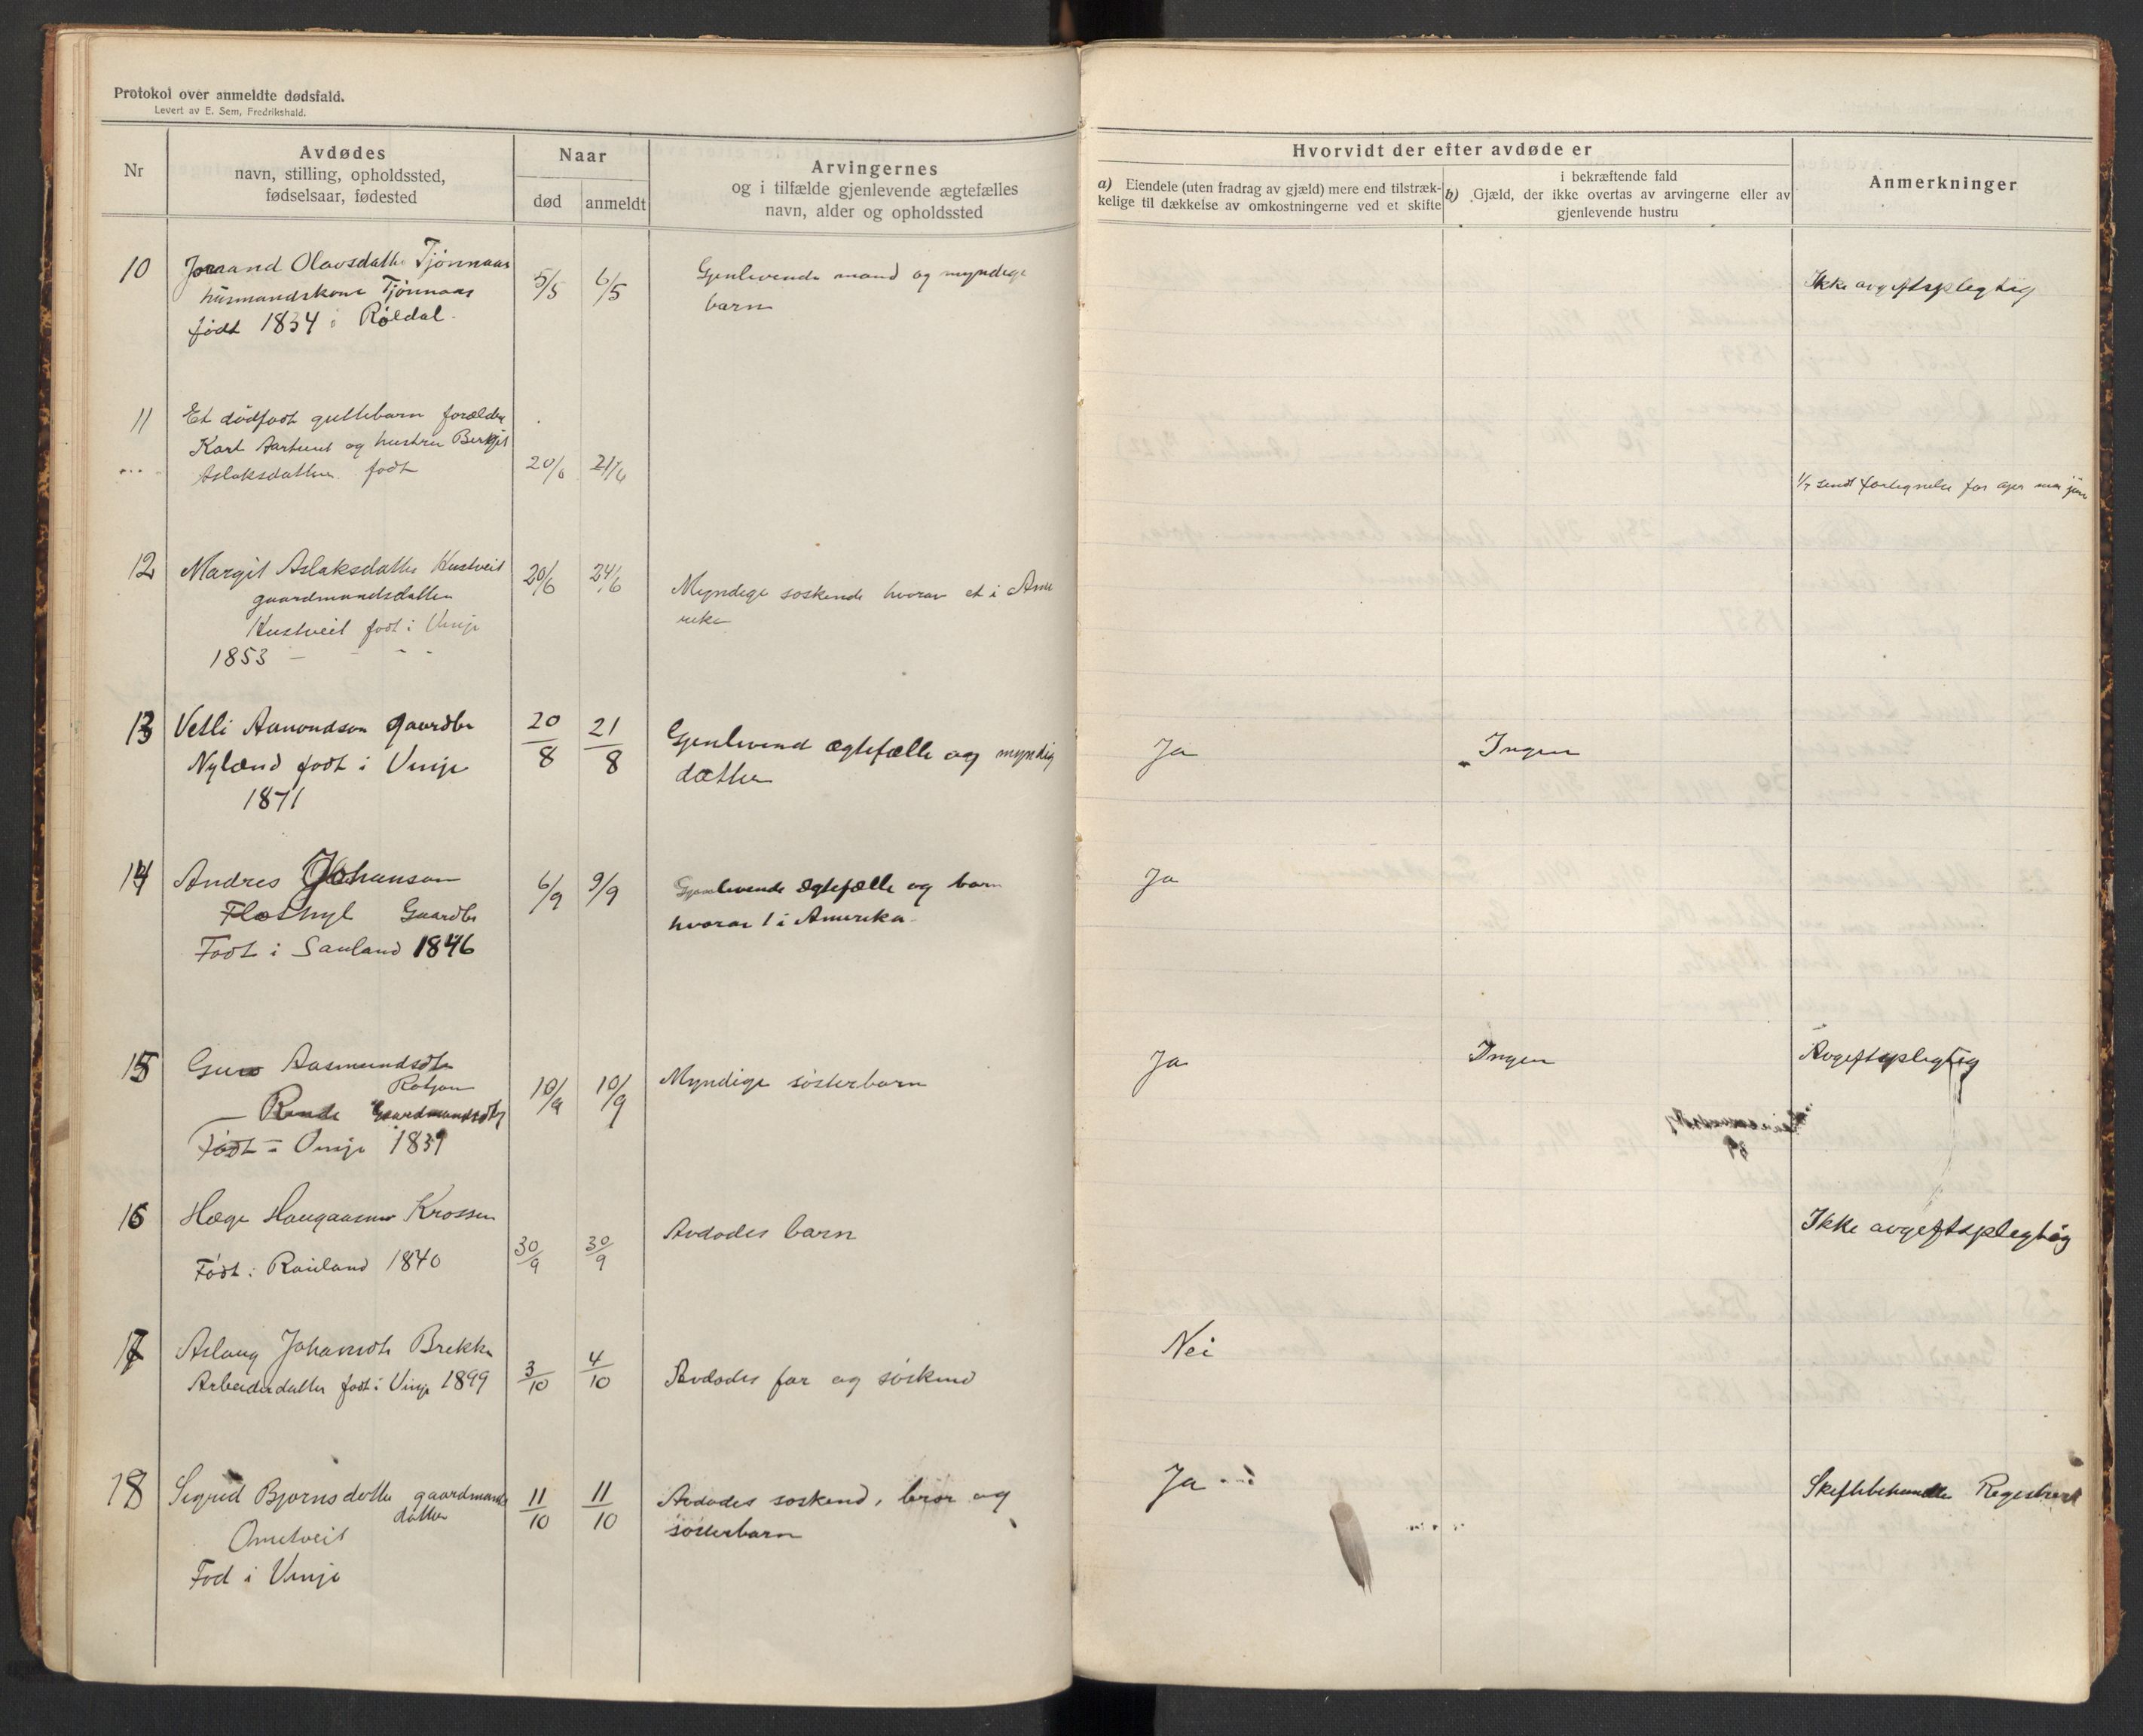 Protokol over anmeldte dødsfald.
Levert av E. Sem, Fredrikshald.
Nr
Avdødes
navn, stilling, opholdssted,
fødselsaar, fødested
Naar
død
anmeldt
Arvingernes
og i tilfælde gjenlevende ægtefælles
navn, alder og opholdssted
Hvorvidt der efter avdøde er
a) Eiendele (uten fradrag av gjæld) mere end tilstræk-
kelige til dækkelse av omkostningerne ved et skifte
i bekræftende fald
b) Gjæld, der ikke overtas av arvingerne eller av
gjenlevende hustru
Anmerkninger
10 Joraand Olavsdatter Tjønnaas
husmandskone Tjønnaas
født 1834 i Røldal.
5/5 6/5
Gjenlevende mand og myndige
barn
Ikke avgiftspligtig
11 Et dødfødt guttebarn forældre
Karl og hustru Bergit
Aslaksdatter født
20/6 21/6
1/7 sendt fortegnelse for
12 Margit Aslaksdatter Kustveit
gaardmandsdatter
Kustveit født i Vinje
1853
20/6 24/6
Myndige søskende hvorav et i Ame
rika
13 Vetli Aamondson gaardbr
Nyland født i Vinje
1871
20/8 21/8
Gjenlevend ægtefælle og myndig
datter
Ja
Ingen
14 Andres Johanson
Flothyl Gaardbr
Født i Sauland 1846
6/9 9/9
Gjenlevende ægtefælle og barn
hvorav 1 i Amerika
Ja
15 Guro Aasmundsdtr
Gaardmandsdtr
Født i Vinje 1839
10/9 10/9
Myndige søsterbarn
Ja
Ingen
Avgiftspligtig
16 Hæge Haugaasen Krossen
Født i Rauland 1840
30/9 30/9
Avdødes barn
Ikke avgiftspligtig
17 Aslaug Johansdtr Brekke
Arbeiderdatter født i Vinje 1899
3/10 4/10
Avdødes far og søskend
Nei
18 Sigrid Bjørnsdatter gaardmands
datter
Omtveit
Fød i Vinje
11/10 11/10
Avdødes søskend, bror og
søsterbarn
Ja
Skiftebehandles Registrert